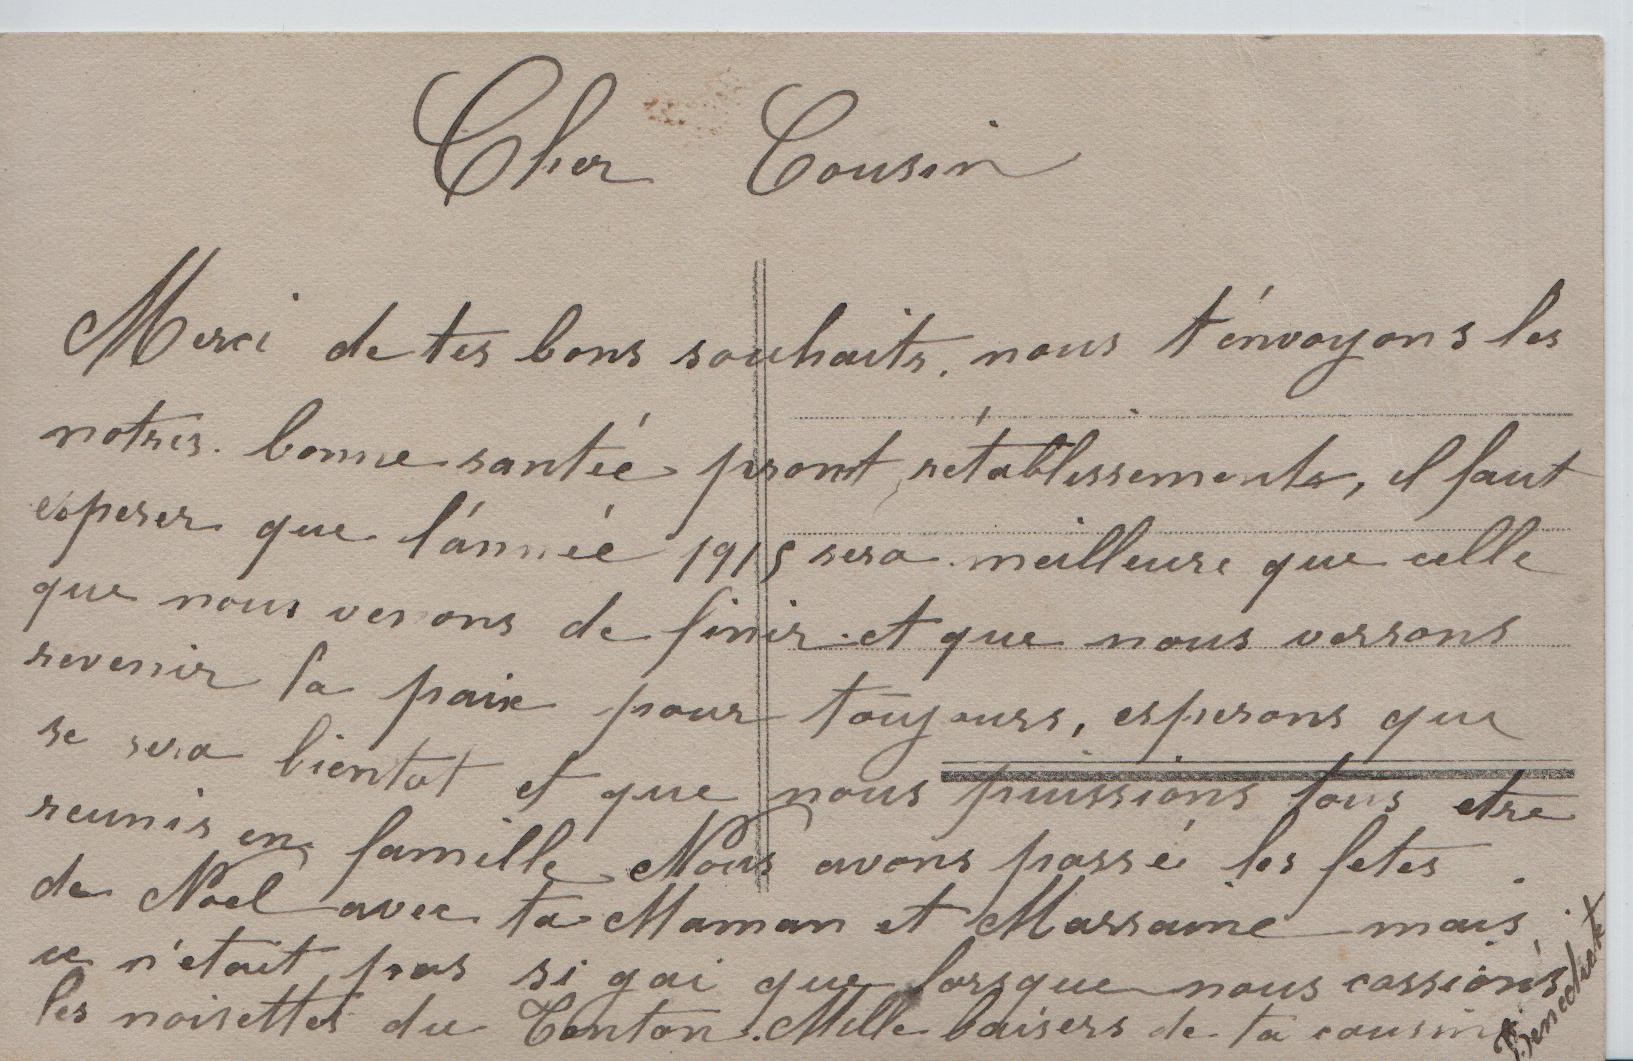 Cher Cousin
Merci de tes bons souhaits, nous t'énvoyons les
notres. bonne santée pront rétablissements, il faut
esperer que l'ánnée 1915 sera meilleure que celle
que nous venons de finir et que nous verrons
revenir la paix pour toujours, esperons que
se sera bientot et que nous puissions tous etre
reunis en famille Nous avons passé les fetes
de Noel avec ta Maman et Marraine mais
ce n'etait pas si gai que lorsque nous cassions
les noisettes du Tonton. Mille baisers de ta cousine